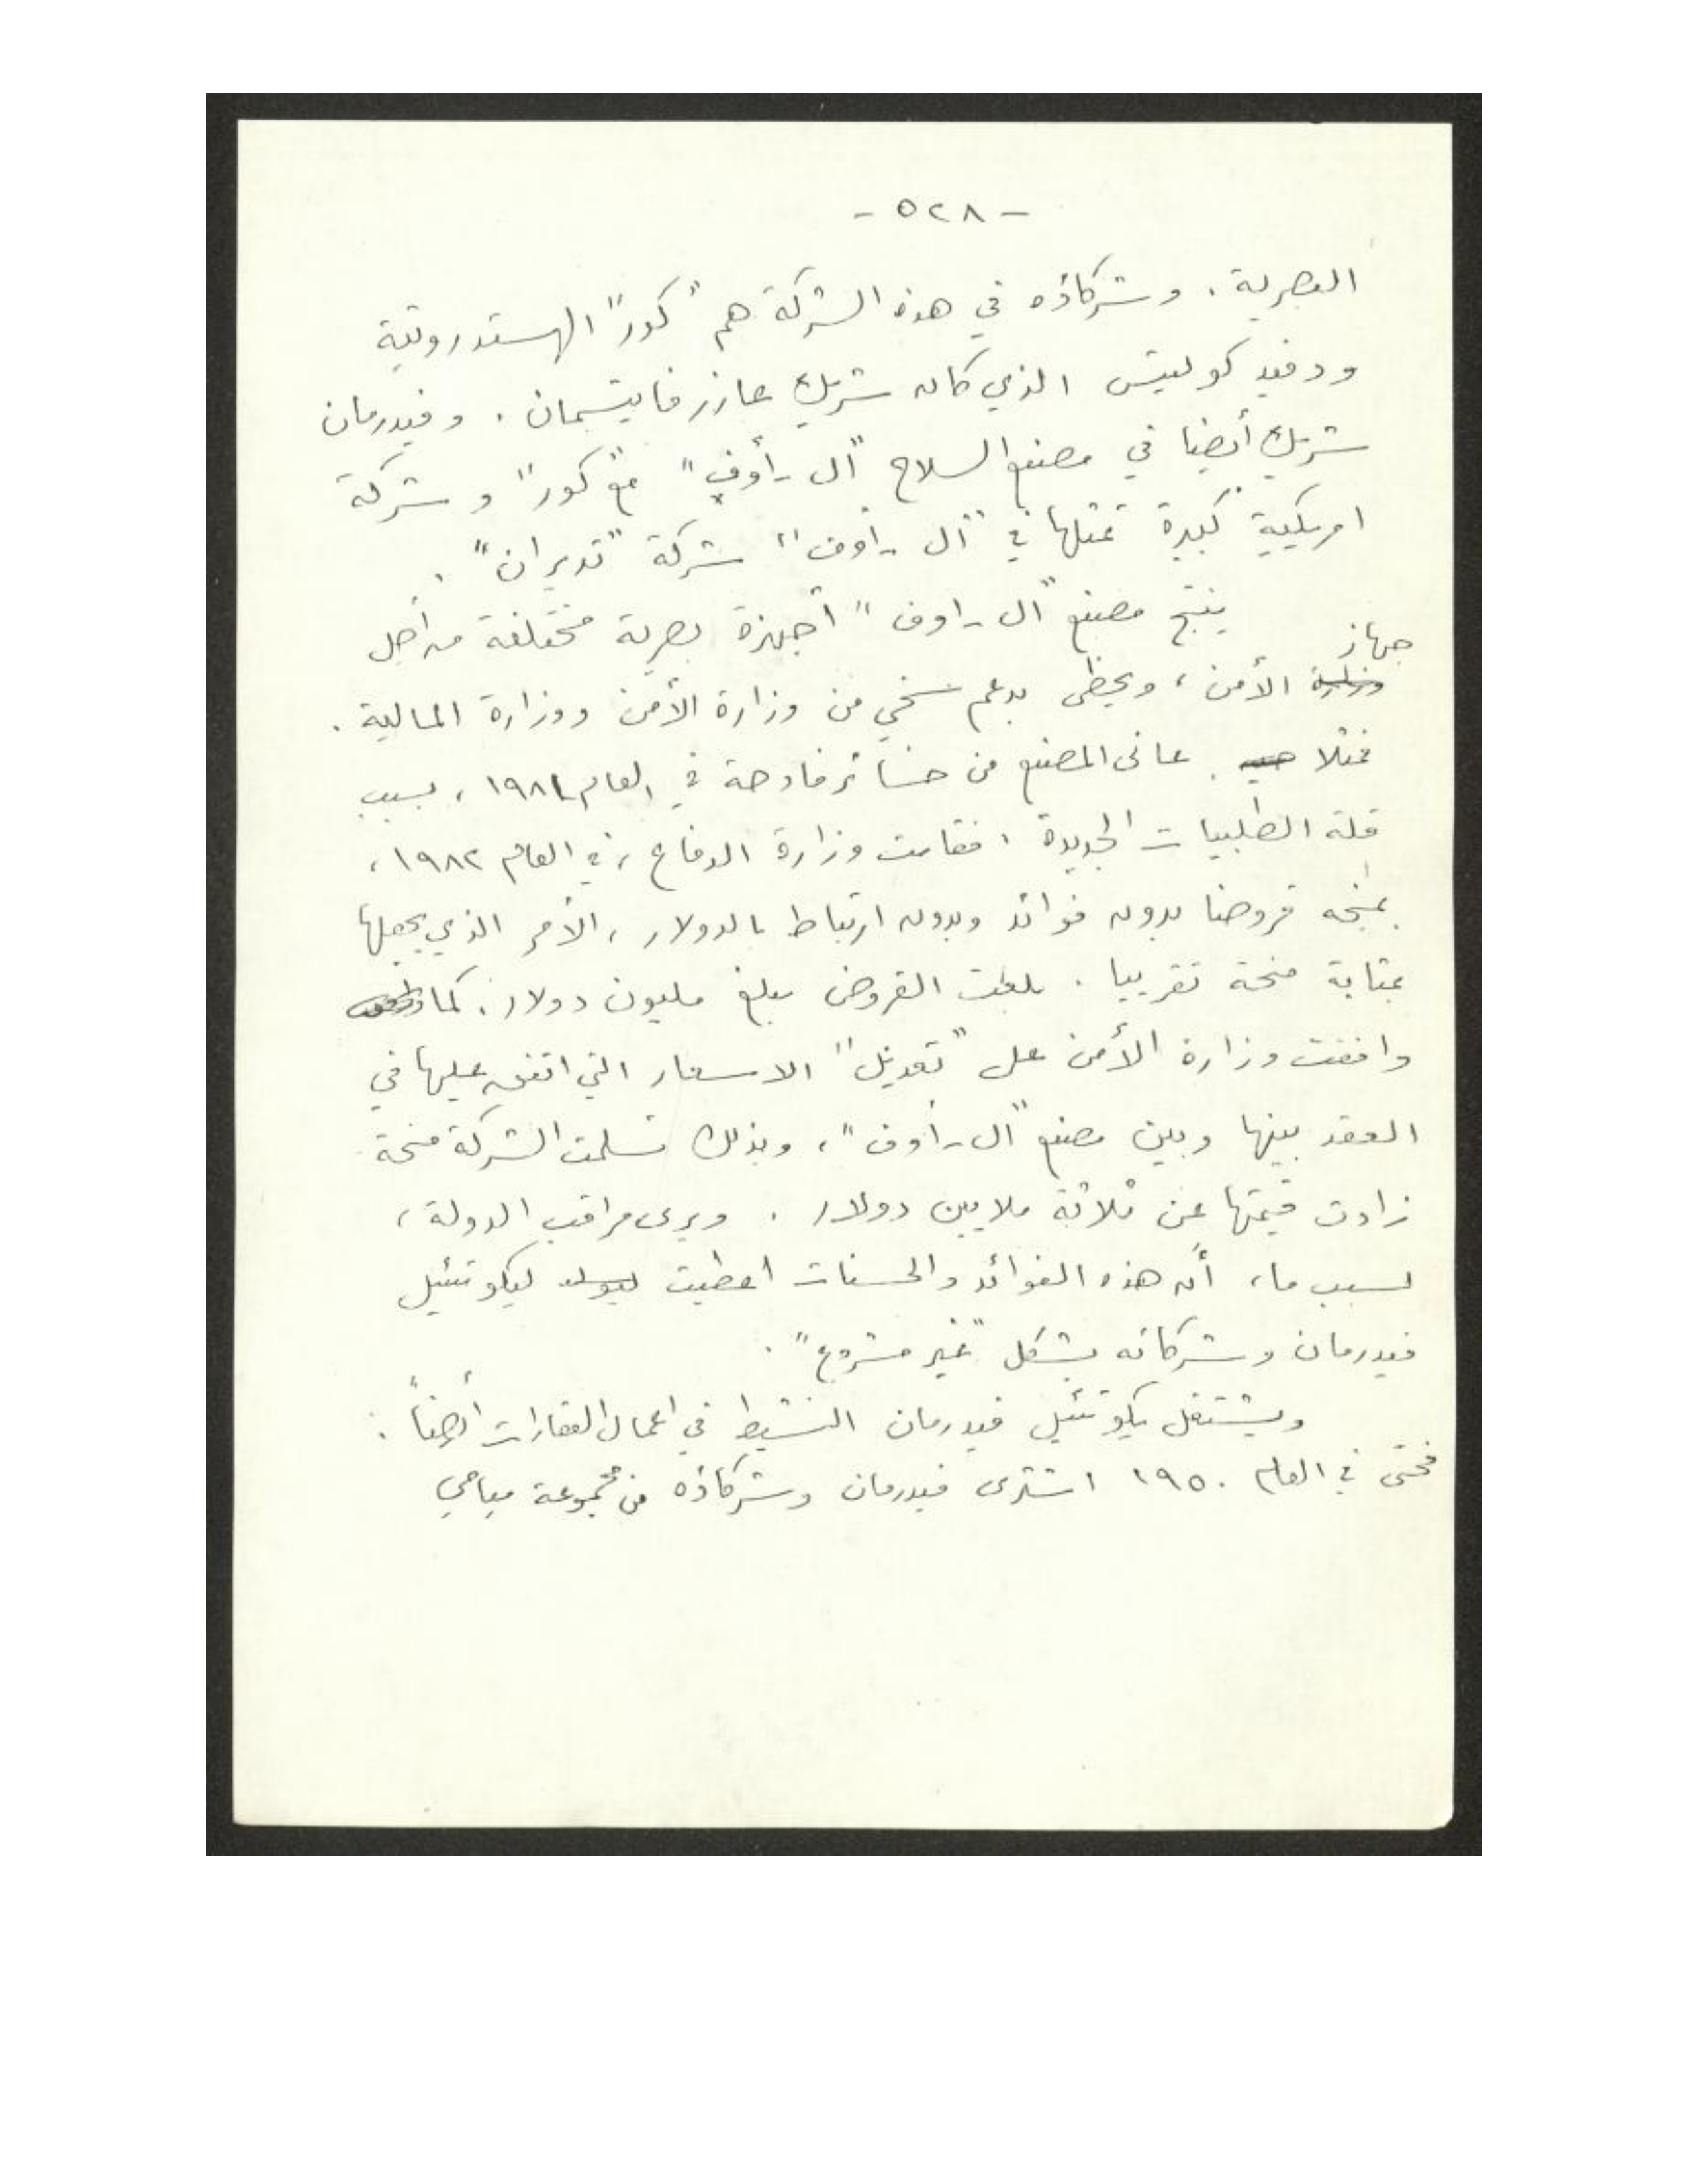 - ٥٢٨ -
البصرية . وشركاؤه في هذه الشركة هم "كور" الهستدروتية
ودفيد كوليتس الذي كان شريك عازر فايتسمان . وفيدرمان
شريك أيضا في مصنع السلاح "ال - أوف" مع "كور" وشركة
امريكية كبيرة تمثلها في "ال - أوف" شركة "تديران" .
ينتج مصنع "ال - اوف" أجهزة بصرية مختلفة من أجل
جهاز
وزارة الأمن ، ويحظى بدعم سخي من وزارة الأمن ووزارة المالية .
فمثلا عانى المصنع من خسائر فادحة في العام ١٩٨١ ، بسبب
قلة الطلبيات الجديدة . فقامت وزارة الدفاع ، في العام ١٩٨٢ ،
بمنحه قروضا بدون فوائد وبدون ارتباط بالدولار ، الأمر الذي يجعلها
بمثابة منحة تقريبا . بلغت القروض مبلغ مليون دولار . كما
وافقت وزارة الأمن على "تعديل" الاسعار التي اتفق عليها في
العقد بينها وبين مصنع "ال - أوف" ، وبذلك تسلمت الشركة منحة
زادت قيمتها عن ثلاثة ملايين دولار . ويرى مراقب الدولة ،
لسبب ما ، أن هذه الفوائد والحسنات اعطيت ليكوتئيل
فيدرمان وشركائه بشكل "غير مشروع" .
ويشتغل يكوتئيل فيدرمان النشيط في اعمال العقارات أيضاً .
فحتى في العام ١٩٥٠ اشترى فيدرمان وشركاؤه من مجموعة ميامي